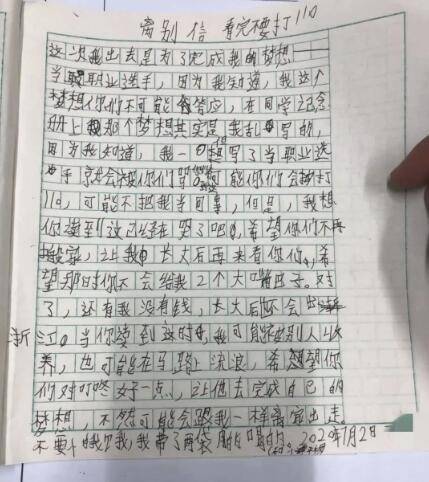 离别信 看完不要打110
这次我出去是为了完成我的梦想——
当职业选手，因为我知道，我这个
梦想你们不可能答应，在同学纪念
册上我那个梦想其实是我乱写的，
因为我知道，我一但写了当职业选
手就会被你们骂，可能你们会打
110，可能不把我当回事，但是，我想
你读到这已经在哭了吧，希望你们不要
搬家，让我长大后再来看你们，希
望那时你不会给我2个大嘴巴子。对
了，还有我没有钱，长大后还会出
浙江。当你读到这时，我可能在被别人收
养，也可能在马路上流浪，希望你
们对叮咚好一点，让他去完成自己的
梦想，不然可能会跟我一样离家出走。
不要饿我，我带了两袋 2020年1月2日